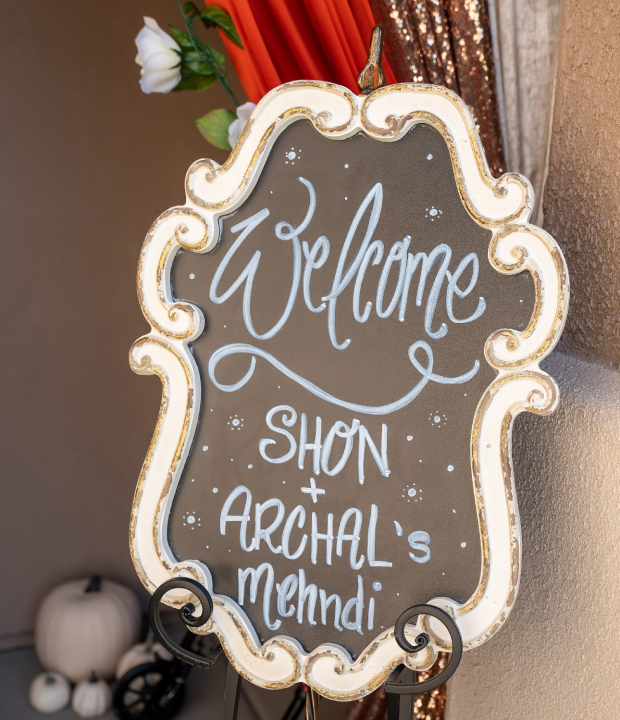 Welcome
SHON
+
ARCHAL's
mehndi